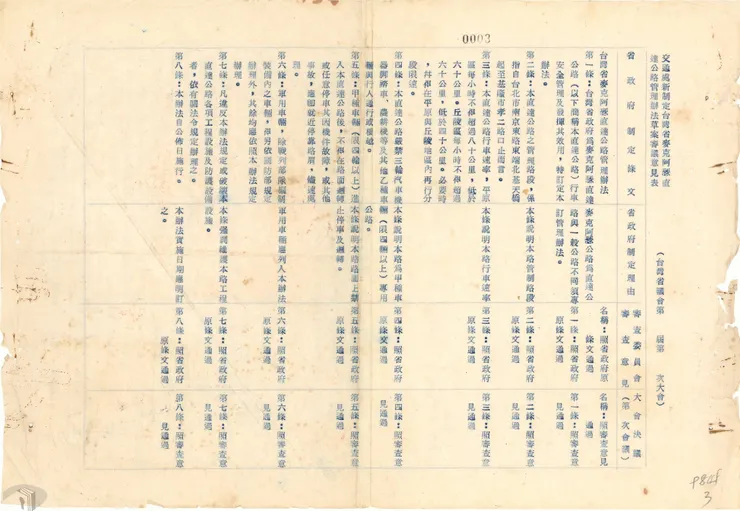 0003
交通處新制定台灣省麥克阿瑟直
達公路管理辦法草案審議意見表
(台灣省議會第 屆第 次大會)
省政府制定條文
台灣省麥克阿瑟直達公路管理辦法
第一條:台灣省政府為麥克阿瑟直達
公路(以下簡稱本直達公路)行車
安全管理及發揮其效用,特訂定本
辦法。
第二條:本直達公路之管理路段,係
指自台北市南京東路東端北基天橋
起至基隆市孝二路口止而言。
第三條:本直達公路行車速率,平原
區每小時不得超過八十公里,低於
六十公里。丘陵區每小時不得超過
六十公里,低於四十公里。必要時
,幷得在平原與丘陵地區內再行分
段限速。
第四條:本直達公路嚴禁三輪汽車機
器腳踏車、農耕機等及其他乙種車
輛與行人通行或穿越。
第五條:甲種車輛(限四輪以上)進
入本直達公路後,不得在路面迴轉
或任意停車其因機件故障,或其他
事故,應即就近停靠路肩,儘速處
理。
第六條:軍用車輛,除戰列部隊編制
裝備內之車輛,得另依國防部規定
辦理外,其餘均應依照本辦法規定
辦理。
第七條:凡違反本辦法規定或破壞本
直達公路各項工程設施及防護設備
者,依有關法令規定辦理之。
第八條:本辦法自公佈日施行。
省政府制定理由
麥克阿瑟公路為直達公
路與一般公路不同須專
訂管理辦法。
本條說明本路管制路段
本條說明本路行車速率
本條說明本路為甲種車
輛(限四輪以上)專用
公路。
本條說明本路路面上禁
止停車及迴轉。
軍用車輛應列入本辦法
本條強調維護本路工程
設施。
本辦法實施日期應明訂
之。
審查委員會
審查意見
名稱:照省政府原
條文通過
第一條:照省政府
原條文通過
第二條:照省政府
原條文通過
第三條:照省政府
原條文通過
第四條:照省政府
原條文通過
第五條:照省政府
原條文通過
第六條:照省政府
原條文通過
第七條:照省政府
原條文通過
第八條:照省政府
原條文通過
大會決議
(第 次會議)
名稱:照審查意見
通過
第一條:照審查意
見通過
第二條:照審查意
見通過
第三條:照審查意
見通過
第四條:照審查意
見通過
第五條:照審查意
見通過
第六條:照審查意
見通過
第七條:照審查意
見通過
第八條:照審查意
見通過
3